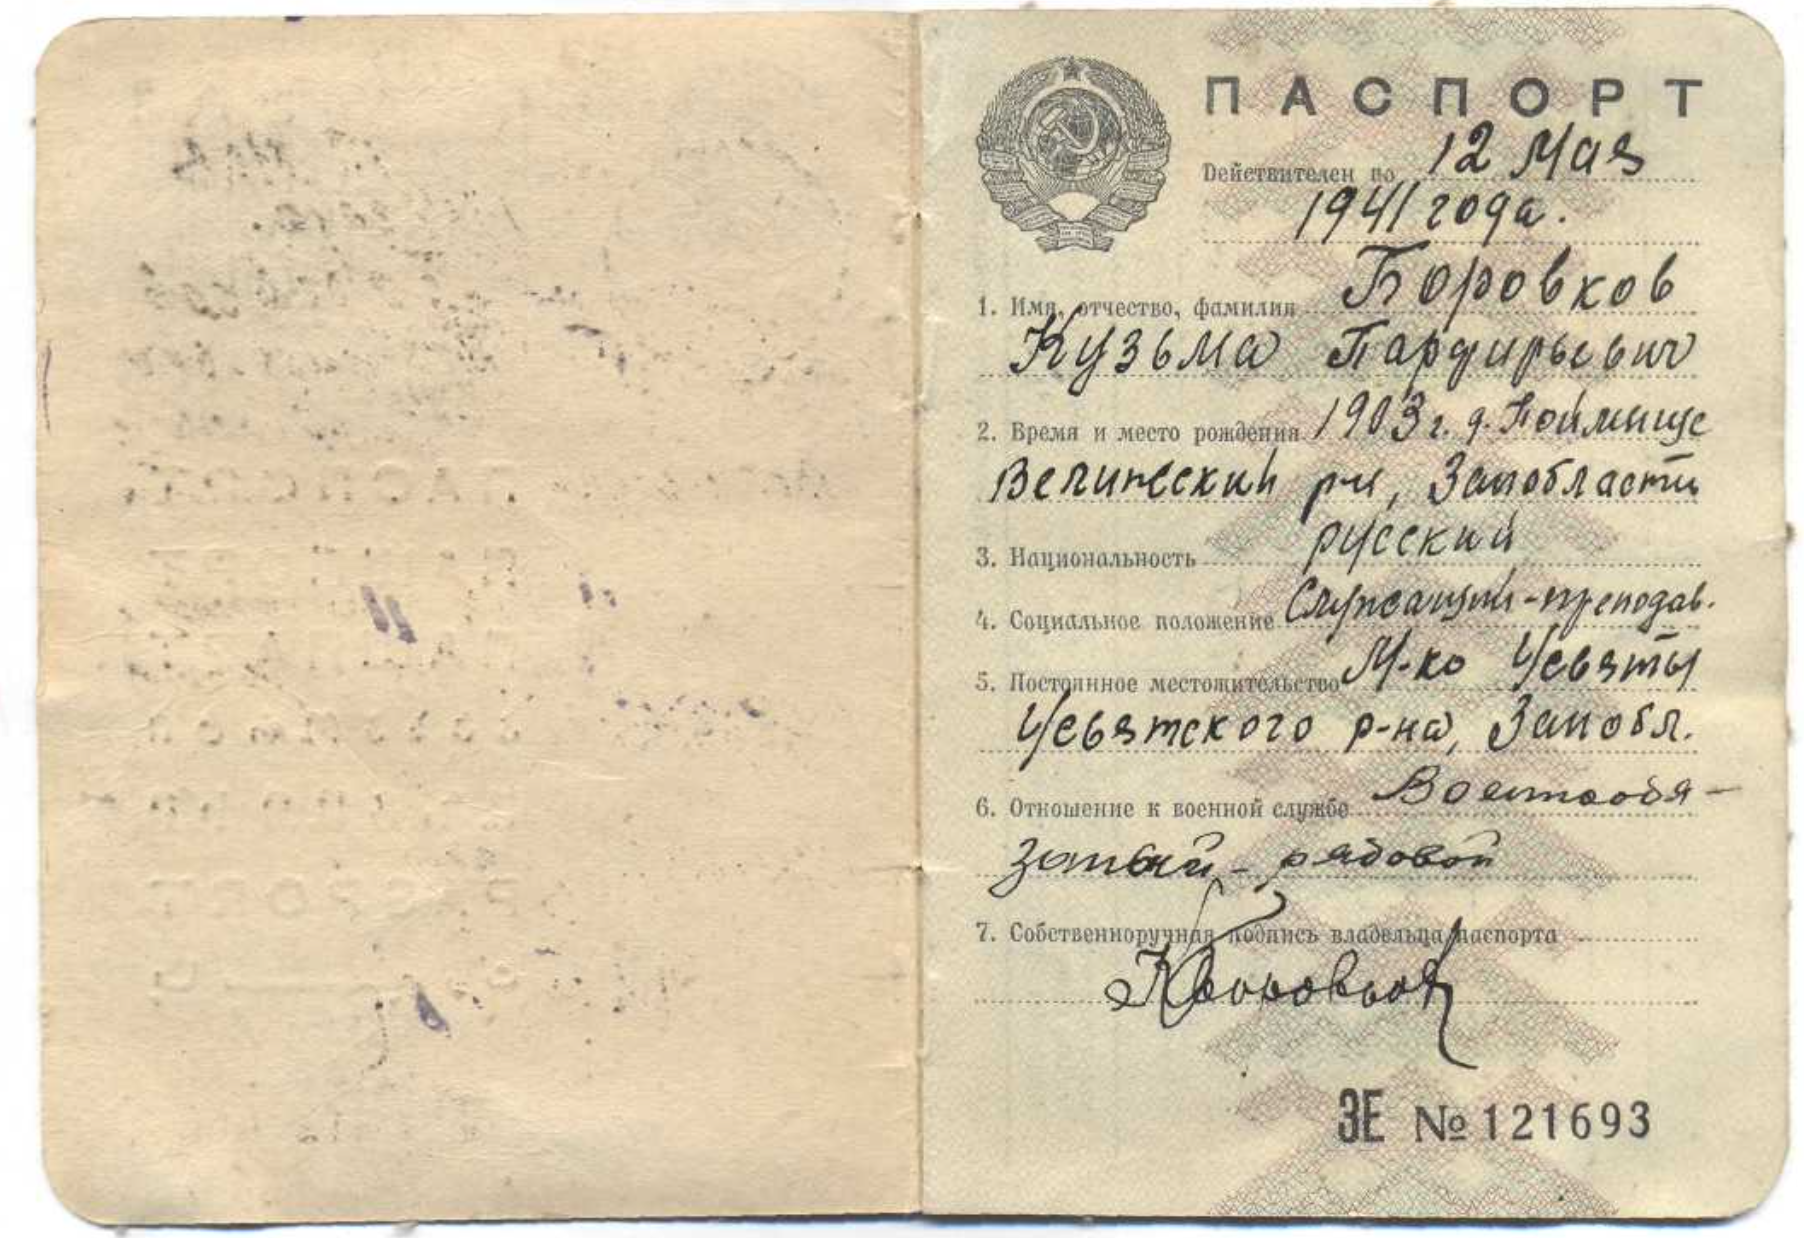 ПАСПОРТ
Действителен по 12 Мая
1941 года.
1. Имя, отчество, фамилия Боровков
Кузьма Парфирьевич
2. Время и место рождения 1903 г. д. Поймище
Велижский р-н, Запобласти
3. Национальность русский
4. Социальное положение Служащий-преподав.
5. Постоянное местожительство М-ко Усвяты
Усвятского р-на, Запобл.
6. Отношение к военной службе Военнообя-
занный - рядовой
7. Собственноручная подпись владельца паспорта
КБоровков
ЗЕ № 121693